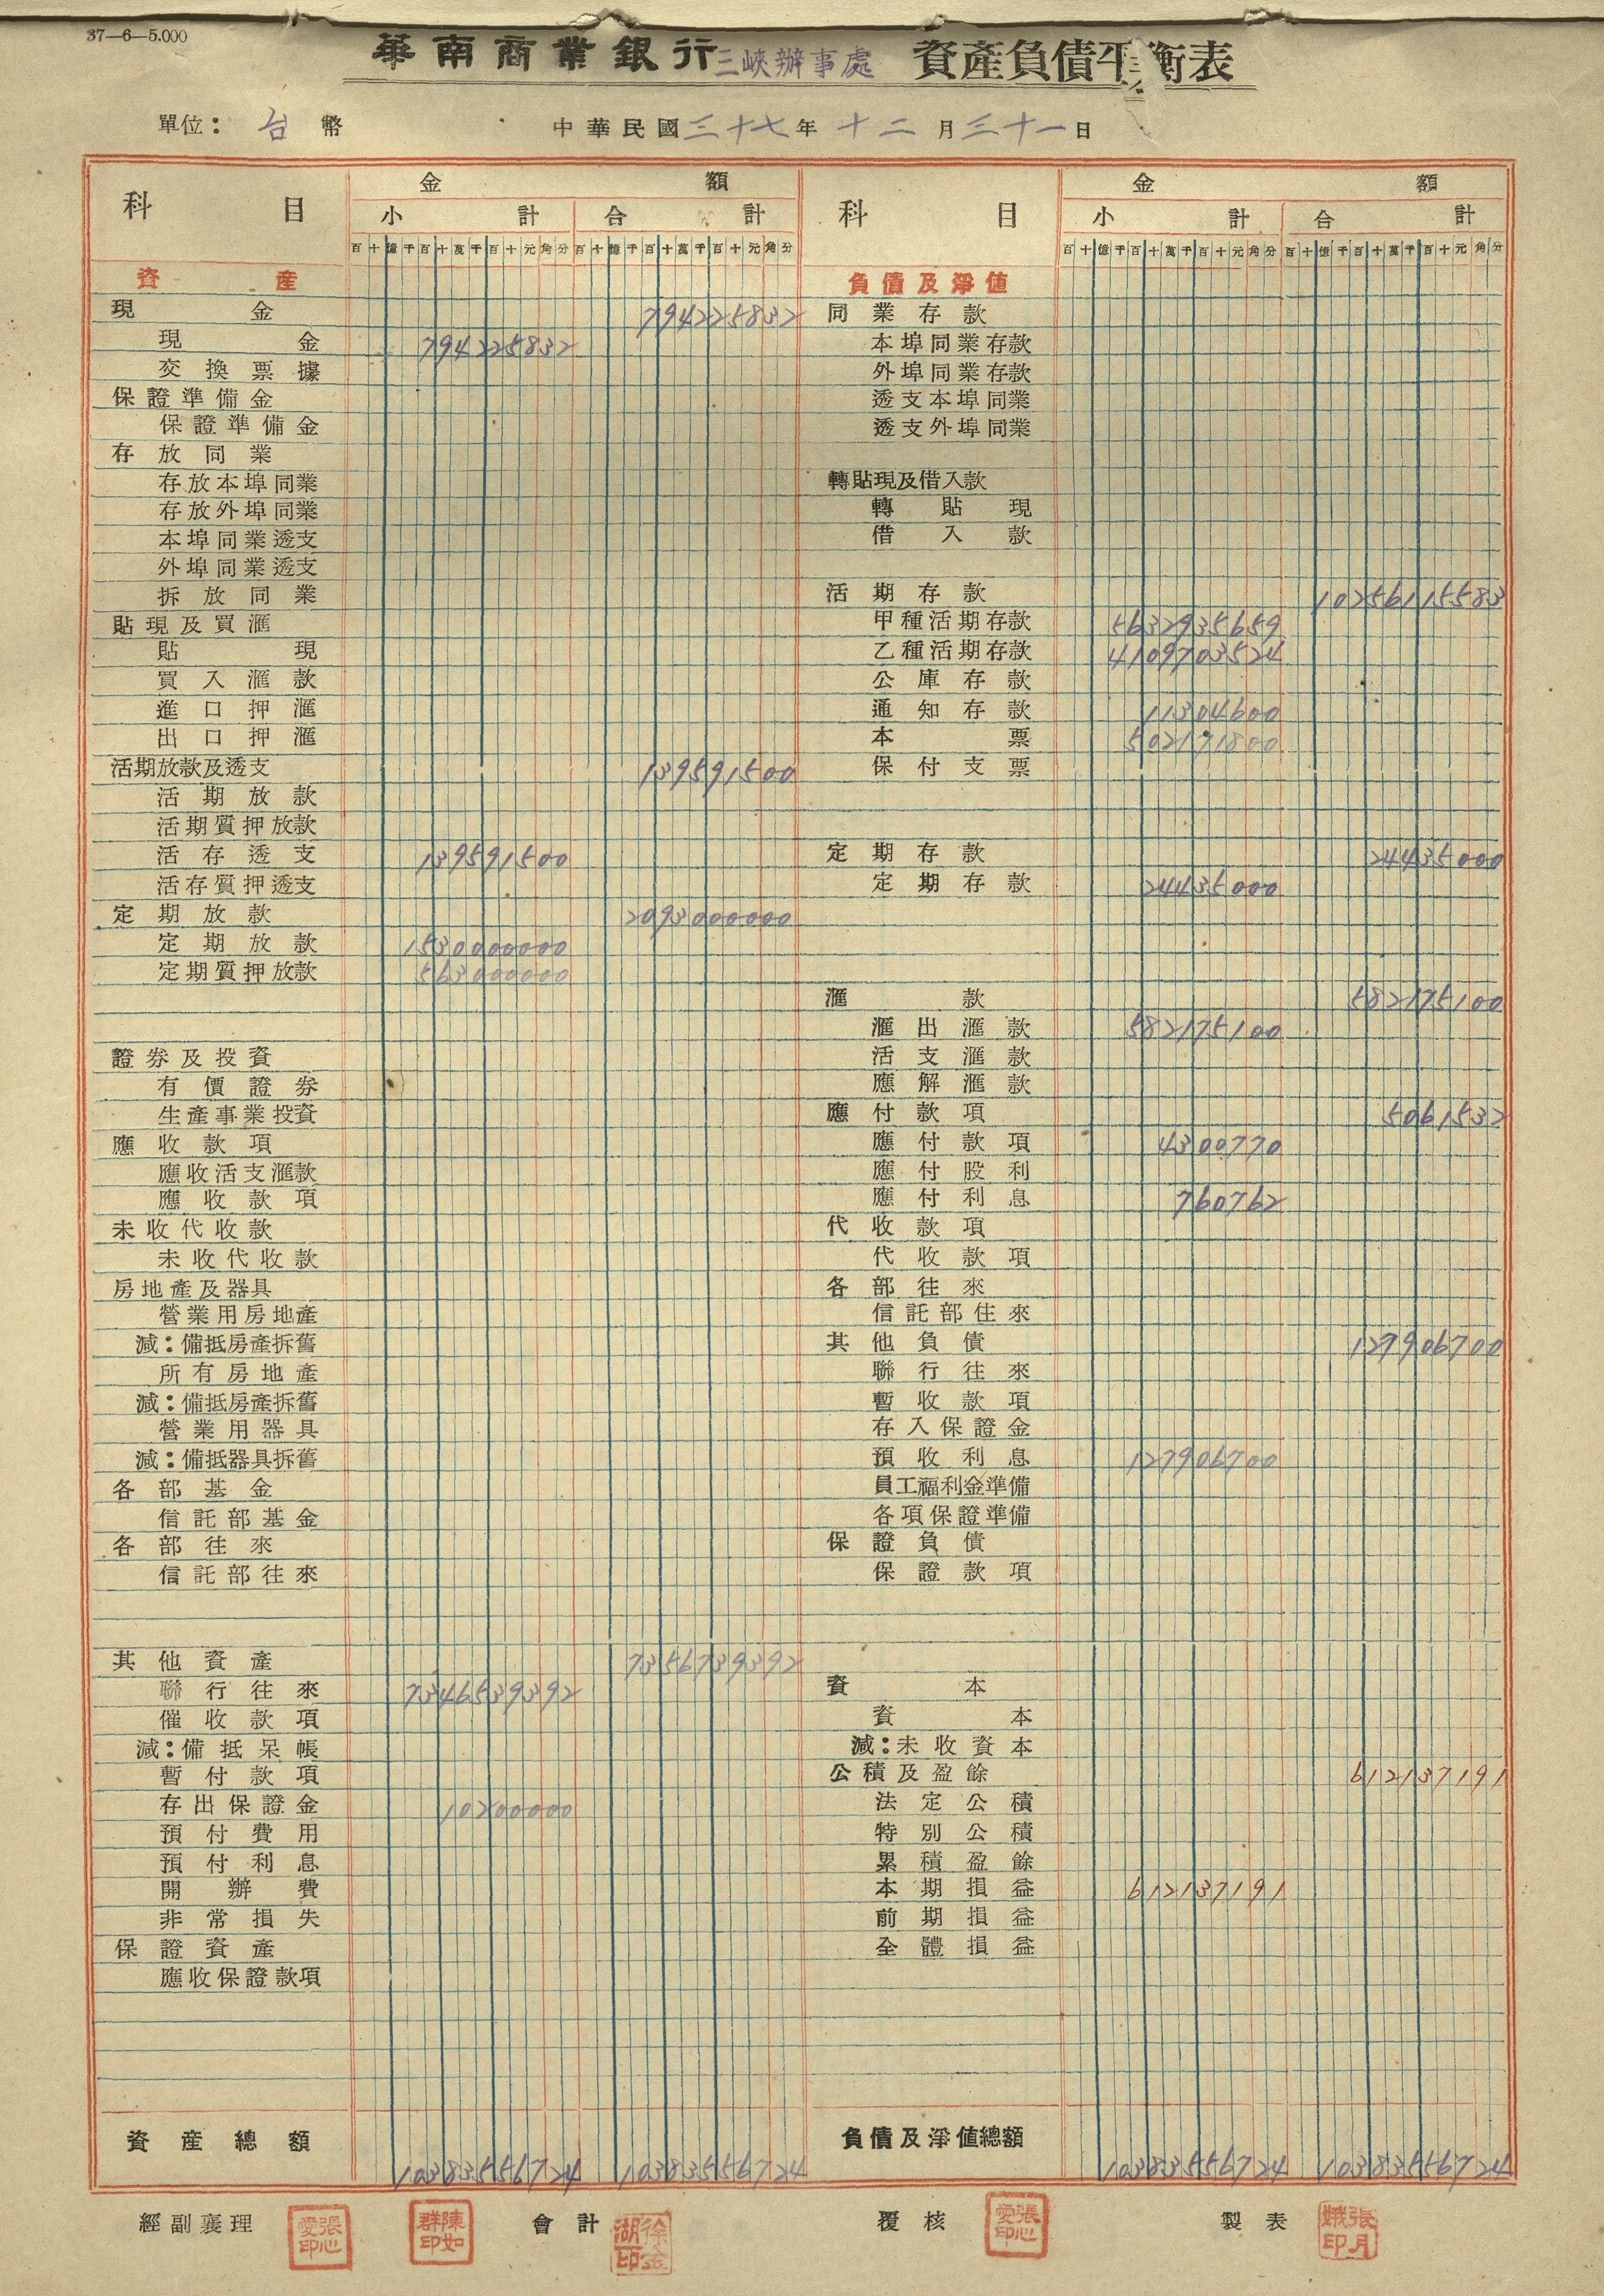 37—6—5.000
華南商業銀行三峽辦事處 資產負債平衡表
單位：台幣 中華民國三十七年十二月三十一日
科目 金額
小計 合計
百十億千百十萬千百十元角分 百十億千百十萬千百十元角分
資產
現金 794225832
現金 794225832
交換票據
保證準備金
保證準備金
存放同業
存放本埠同業
存放外埠同業
本埠同業透支
外埠同業透支
拆放同業
貼現及買滙
貼現
買入滙款
進口押滙
出口押滙
活期放款及透支 139591500
活期放款
活期質押放款
活存透支 139591500
活存質押透支
定期放款 2093000000
定期放款 1530000000
定期質押放款 563000000
證券及投資
有價證券
生產事業投資
應收款項
應收活支滙款
應收款項
未收代收款
未收代收款
房地產及器具
營業用房地產
減：備抵房產拆舊
所有房地產
減：備抵房產拆舊
營業用器具
減：備抵器具拆舊
各部基金
信託部基金
各部往來
信託部往來
其他資產 7356739392
聯行往來 7346539392
催收款項
減：備抵呆帳
暫付款項
存出保證金 10200000
預付費用
預付利息
開辦費
非常損失
保證資產
應收保證款項
資產總額 10383556724 10383556724
科目 金額
小計 合計
百十億千百十萬千百十元角分 百十億千百十萬千百十元角分
負債及淨值
同業存款
本埠同業存款
外埠同業存款
透支本埠同業
透支外埠同業
轉貼現及借入款
轉貼現
借入款
活期存款 10256115583
甲種活期存款 5632935659
乙種活期存款 4109703524
公庫存款
通知存款 11304600
本票 502171800
保付支票
定期存款 24435000
定期存款 24435000
滙款 582175100
滙出滙款 582175100
活支滙款
應解滙款
應付款項 5061532
應付款項 4300770
應付股利
應付利息 760762
代收款項
代收款項
各部往來
信託部往來
其他負債 127906700
聯行往來
暫收款項
存入保證金
預收利息 127906700
員工福利金準備
各項保證準備
保證負債
保證款項
資本
資本
減：未收資本
公積及盈餘 612137191
法定公積
特別公積
累積盈餘
本期損益 612137191
前期損益
全體損益
負債及淨值總額 10383556724 10383556724
經副襄理 張心愛印 陳如群印 會計 徐金湖印 覆核 張心愛印 製表 張月娥印